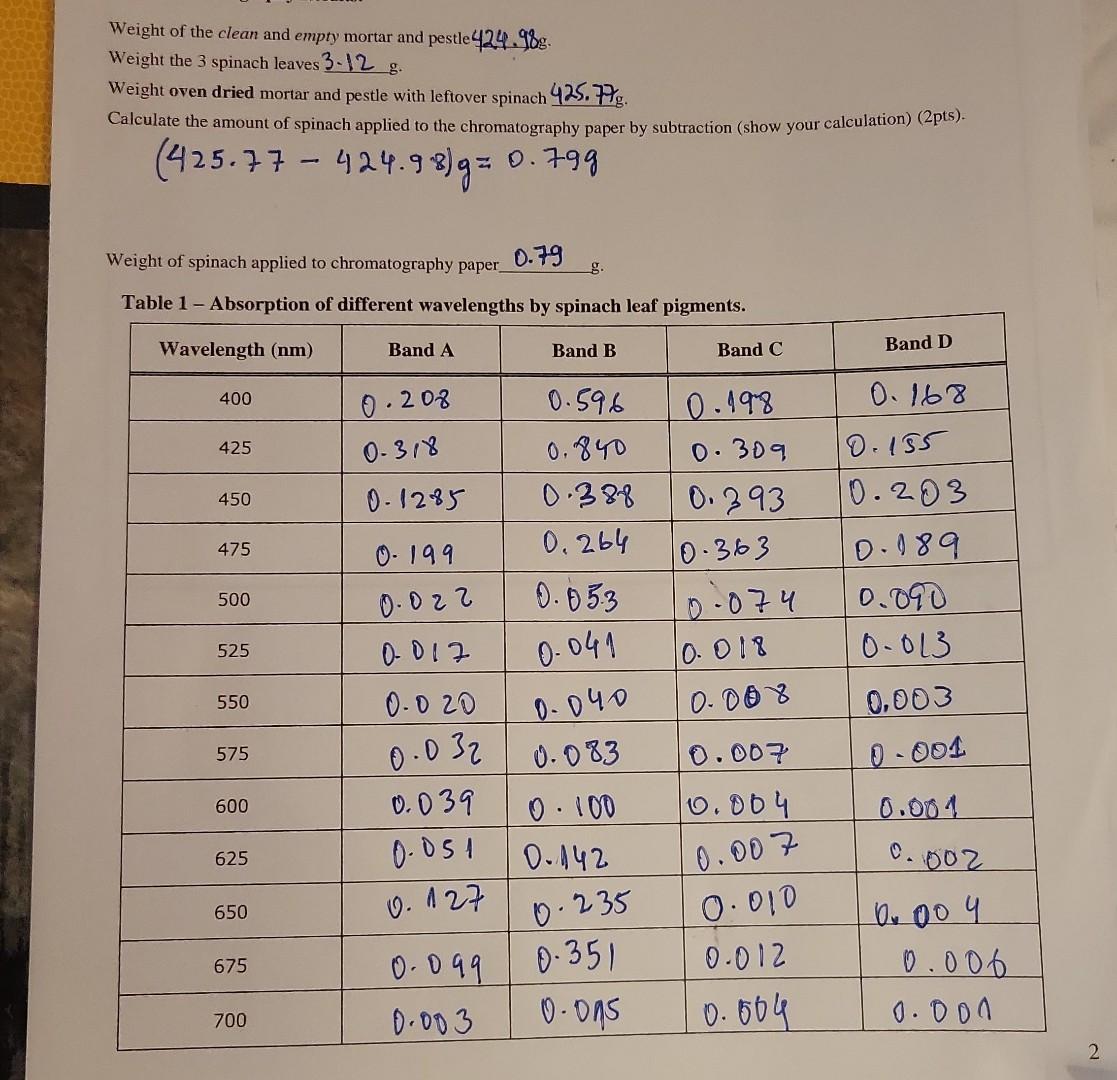 Weight of the clean and empty mortar and pestle 424.98g.
Weight the 3 spinach leaves 3.12 g.
Weight oven dried mortar and pestle with leftover spinach 425.77g.
Calculate the amount of spinach applied to the chromatography paper by subtraction (show your calculation) (2pts).
(425.77 - 424.98)g = 0.79g
Weight of spinach applied to chromatography paper 0.79 g.
Table 1 – Absorption of different wavelengths by spinach leaf pigments.
Wavelength (nm) Band A Band B Band C Band D
400 0.208 0.596 0.198 0.168
425 0.318 0.840 0.309 0.155
450 0.1285 0.388 0.393 0.203
475 0.199 0.264 0.363 0.189
500 0.022 0.053 0.074 0.090
525 0.017 0.041 0.018 0.013
550 0.020 0.040 0.008 0.003
575 0.032 0.083 0.007 0.001
600 0.039 0.100 0.004 0.001
625 0.051 0.142 0.007 0.002
650 0.127 0.235 0.010 0.004
675 0.099 0.351 0.012 0.006
700 0.003 0.015 0.004 0.001
2